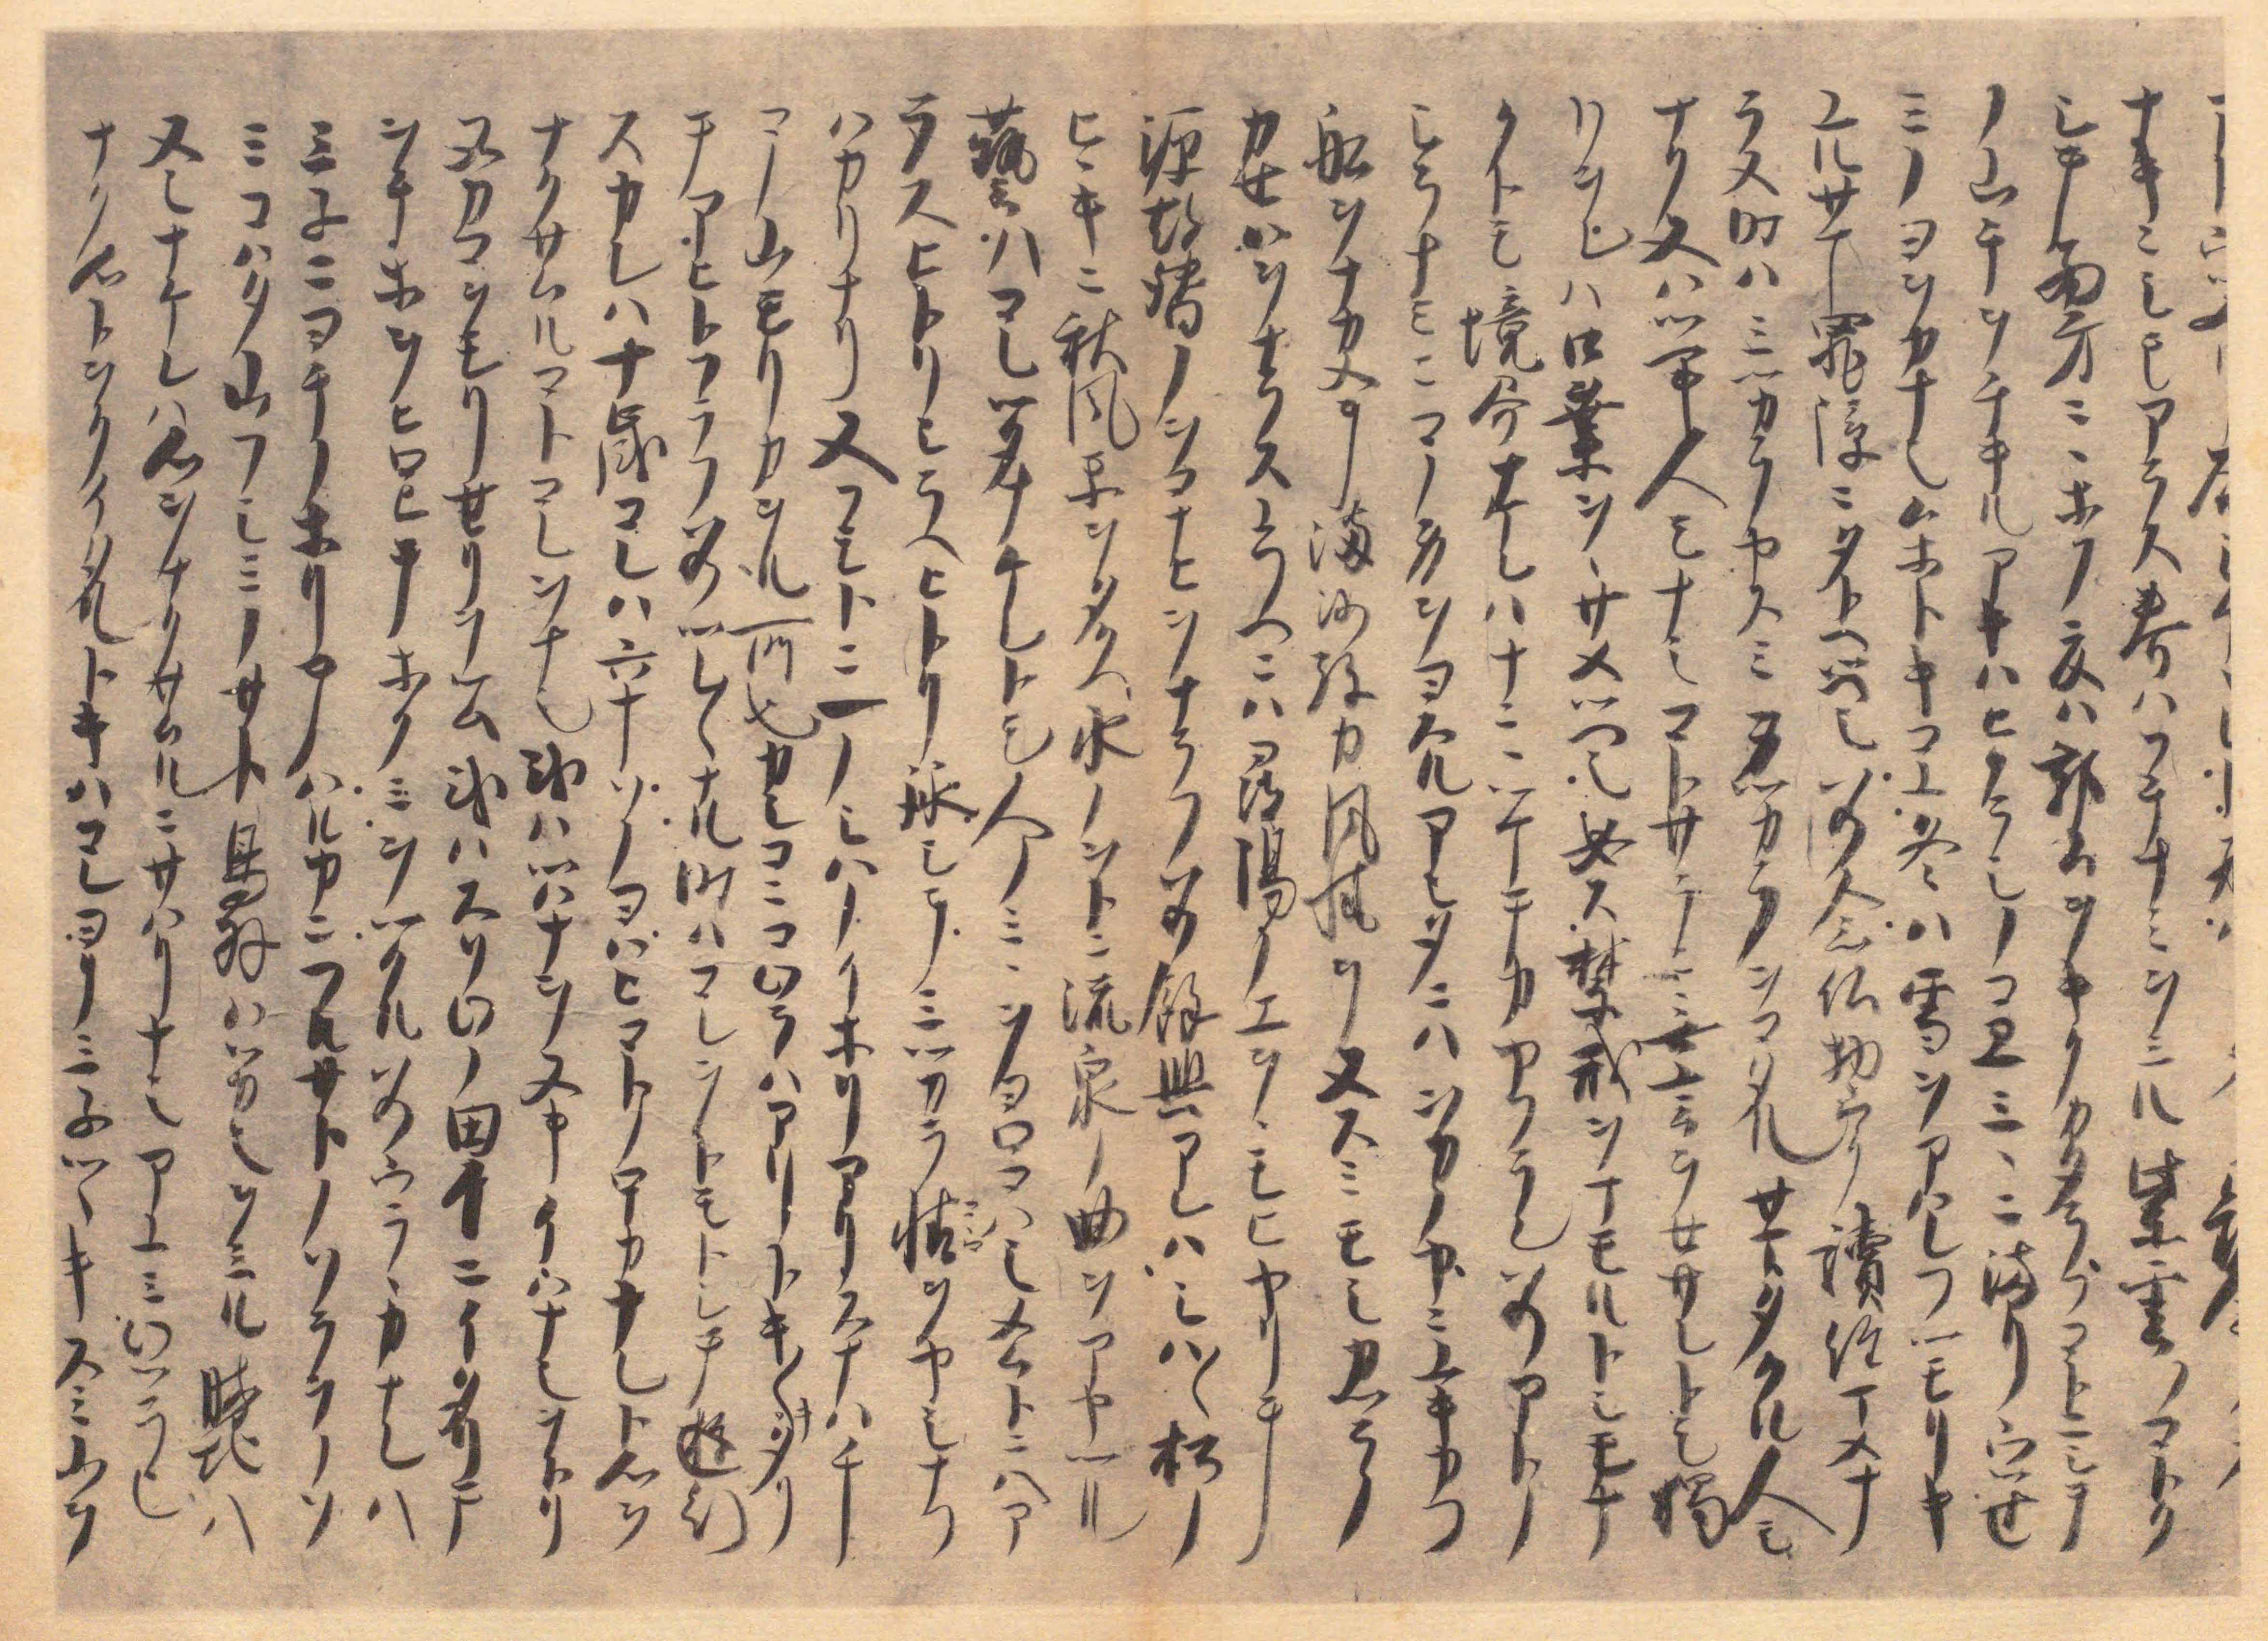 ナキニシモアラス春ハフチナミヲミル紫雲ノコトク
シテ西方ニニホフ夏ハ郭公ヲキクカタラフコトニシテ
ノ山チヲチキルアキハヒクラシノコヱミヽニ満リウツセ
ミノヨヲカナシムホトキコユ冬ハ雪ヲアハレフツモリキ
ユルサマ罪障ニタトヘツヘシ若念仏物ウク讀経マメナ
ラヌ時ハミツカラヤスミ身ツカラヲコタルサマタクル人モ
ナク又ハツヘキ人モナシコトサラニ無言ヲセサレトモ獨
リヲレハ口業ヲヽサメツヘシ必ス禁戒ヲマモルトシモナ
クトモ境界ナケレハナニヽツケテカヤフラン若アトノ
シラナミニコノ身ヲヨスルアシタニハヲカノヤニユキカフ
船ヲナカメテ満沙弥カ風情ヲヌスミモシ桂ノ
カセハヲナラスユフヘニハ尋陽ノエヲヽモヒヤリテ
源都督ノヲコナヒヲナラフ若餘興アレハシハ〱松ノ
ヒヽキニ秋風楽ヲタクヘ水ノヲトニ流泉ノ曲ヲアヤツル
藝ハコレツタナケレトモ人ノミヽヲヨロコハシメムトニハア
ラスヒトリシラヘヒトリ詠シテミツカラ情ヲヤシナフ
ハカリナリ又フモトニ一ノシハノイホリアリスナハチ
コノ山モリカヲル所也カシコニコワラハアリトキ〱キタリ
テアヒトフラフ若ツレ〱ナル時ハコレヲトモトシテ遊行
スカレハ十歳コレハ六十ソノヨハヒコトノホカナレト心ヲ
ナクサムルコトコレヲナシ或ハツハナヲヌキイハナシヲトリ
ヌカコヲモリセリヲツム或ハスソワノ田井ニイタリテ
ヲチホヲヒロヒテホクミヲツクル若ウラヽカナレハ
ミネニヨチノホリテハルカニフルサトノソラヲノソ
ミコハタ山フシミノサト鳥羽ハツカシヲミル勝地ハ
ヌシナケレハ心ヲナクサムルニサハリナシアユミワツラヒ
ナク心トヲクイタルトキハコレヨリミネツヽキスミ山ヲ